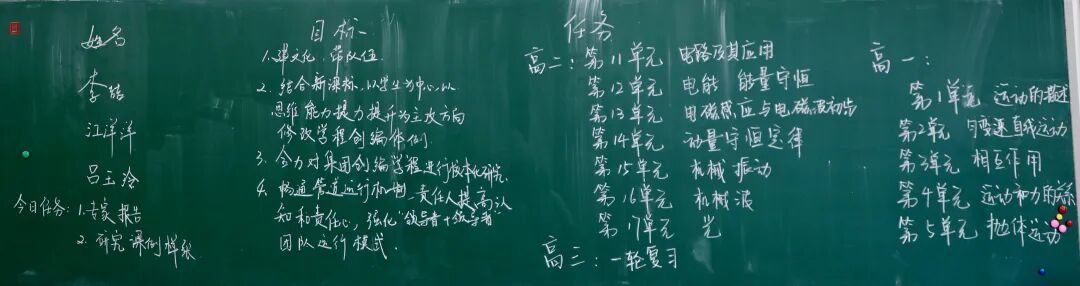 姓名
李
江洋洋
吕玉玲
今日任务:1.专家报告
2.研究课例样张
目标
1.建文化、带队伍
2.结合新课标,以学生为中心,以
思维能力提力提升为主攻方向
修改学程创编体例.
3.合力对集团创编学程进行校本化研究.
4.畅通管道运行机制,责任人提高认
知和责任心,强化“领导者+领导者”
团队运行模式.
任务
高二:第11单元 电路及其应用
第12单元 电能 能量守恒
第13单元 电磁感应与电磁波初步
第14单元 动量守恒定律
第15单元 机械振动
第16单元 机械波
第17单元 光
高三:一轮复习
高一:
第1单元 运动的描述
第2单元 匀变速直线运动
第3单元 相互作用
第4单元 运动和力的关系
第5单元 抛体运动